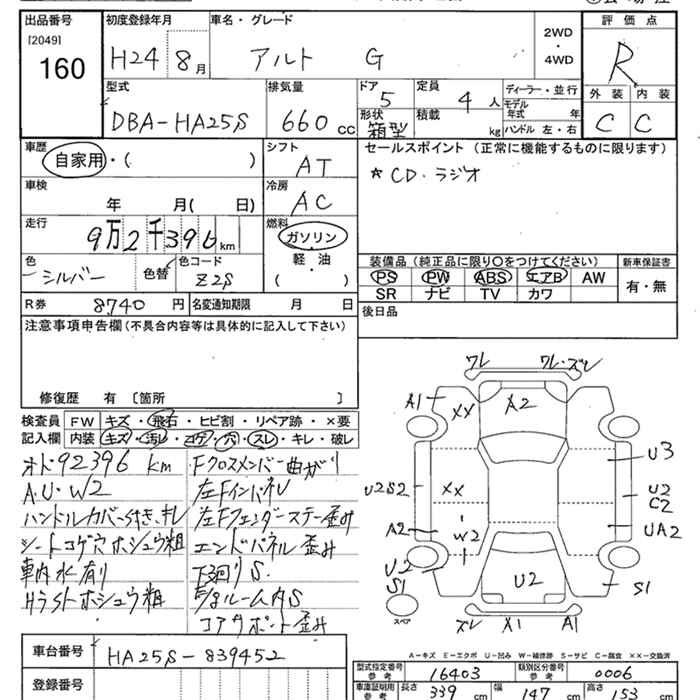 出品番号
[2049]
160
初度登録年月
H24 8月
車名・グレード
アルト G
2WD
・
4WD
評価点
R
外装 内装
C C
型式
DBA-HA25S
排気量
660cc
ドア
5
形状
箱型
定員
4人
積載
kg
ディーラー・並行
モデル
年式 年
ハンドル 左・右
車歴
自家用・( )
シフト
AT
セールスポイント(正常に機能するものに限ります)
☆CD・ラジオ
車検
年 月( 日)
冷房
AC
走行
9万2千396km
燃料
ガソリン
軽油
・
( )
色
シルバー
色替
色コード
Z2S
装備品(純正品に限り〇をつけてください)
PS PW ABS エアB AW
SR ナビ TV カワ
新車保証書
有・無
R券 8740円
名変通知期限 月 日
後日品
注意事項申告欄(不具合内容等は具体的に記入して下さい)
修復歴 有〔箇所 〕
検査員
記入欄
FW キズ・飛石・ヒビ割・リペア跡・×要
内装 キズ・汚レ・コゲ・穴・スレ・キレ・破レ
オド92396km
A.U.W2
ハンドルカバーS付き、キレ
シートコゲ穴ホシュウ粗
車内水有り
HラSTホシュウ粗
Fクロスメンバー曲がり
左FインパネL
左Fフェンダーステー歪み
エンドパネル歪み
下廻りS
コアサポート歪み
ワレ
ワレ・ズレ
A1
XX
A2
U3
U2S2
XX
U2
C2
A2
W2
UA2
U2
S1
U2
S1
スペア
ズレ X1 A1
A-キズ E-エクボ U-凹み W-補修跡 S-サビ C-腐食 XX-交換済
車台番号
HA25S-839452
登録番号
型式指定番号
参考
16403
類別区分番号
参考
0006
車庫証明用
参考
長さ 339cm
幅 147cm
高さ 153cm